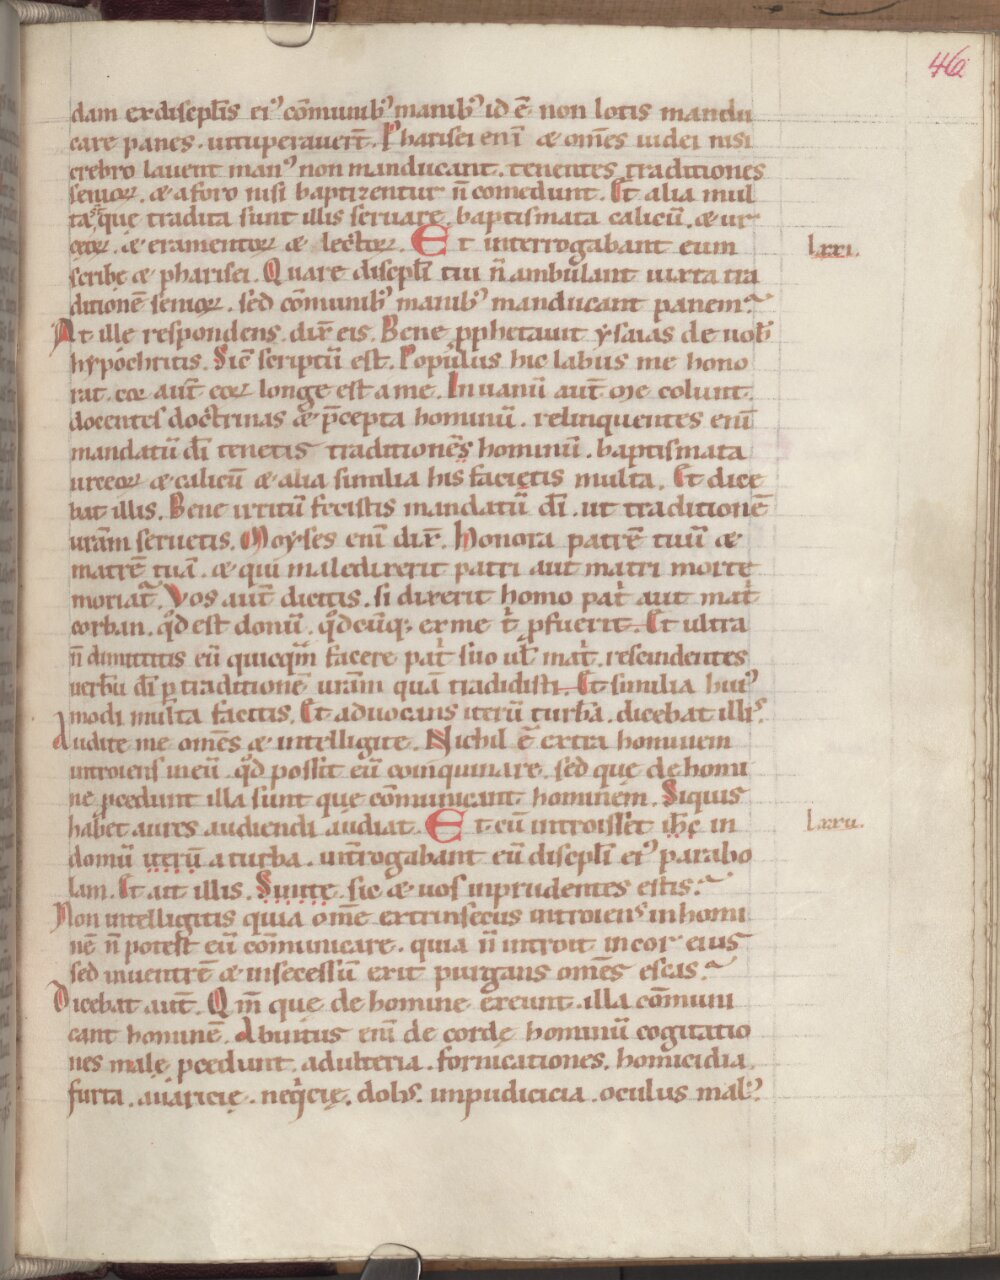 46
dam ex discipl̄is ei᷒ cōmunib᷒ manib᷒ id ē non lotis mandu
care panes . uituperauer̄t . Pharisei eni᷒ & om̄s iudei nisi
crebro lauent man᷒ non manducant . tenentes traditiones
senioꝝ . & a foro nisi baptizentur n̄ comedunt . Et alia mul
ta que tradita sunt illis seruare . baptismata calicū . & ur
ceoꝝ . & eramentoꝝ & lectoꝝ . Et interrogabant eum
Lxxi.
scribę & pharisei . Quare discipl̄i tui n̄ ambulant iuxta tra
ditionē senioꝝ . sed cōmunib᷒ manib᷒ manducant panem?
At ille respondens . dix̄ eis . Bene ꝓphetauit ysaias de uob̄
hypochritis . Sic̄ scriptū est . Populus hic labiis me hono
rat . cor aut̄ eoꝝ longe est a me . In uanū aut̄ me colunt .
docentes doctrinas & p̄cepta hominū . relinquentes enī
mandatū dī tenetis traditiones hominū . baptismata
urceoꝝ & calicū & alia similia his facietis multa . Et dice
bat illis . Bene irritū fecistis mandatū dī . ut traditionē
ur̄am seruetis . Moyses enī dix̄ . Honora patrē tuū &
matrē tuā . & qui maledixerit patri aut matri morte
moriat᷒ . Vos aut̄ dicitis . si dixerit homo pat̄ aut mat̄
corban . qd̄ est donū . qd̄cūq; ex me t̄ ꝓfuerit . Et ultra
n̄ dimittitis eū quicqm̄ facere pat̄ suo ul̄ mat̄ . rescindentes
uerbū dī ꝑ traditionē ur̄am quā tradidisti . Et similia hui᷒
modi multa facitis . Et aduocans iterū turbā . dicebat illis .
Audite me om̄s & intelligite . Nichil ē extra hominem
introiens in eū . qd̄ possit eū coinquinare . sed quę de homi
ne ꝓcedunt illa sunt que cōmunicant hominem . Siquis
habet aures audiendi audiat . Et cū introisset ih̄c in
Lxxii.
domū iterū a turba . int̄rogabant eū discipl̄i ei᷒ parabo
lam . Et ait illis . Sinite . sic & uos inprudentes estis?
Non intelligitis quia om̄e extrinsecus introiens in homi
nē n̄ potest eū cōmunicare . quia n̄ introit in cor eius
sed in uentrē & in secessū exit purgans om̄s escas?
Dicebat aut̄ . Qm̄ que de homine exeunt . illa cōmuni
cant hominē . Ab intus enī de cordę hominū cogitatio
nes malę ꝓcedunt . adulteria . fornicationes . homicidia .
furta . auaricię . neq̄cię . dolus . impudicicia . oculus mal᷒ .